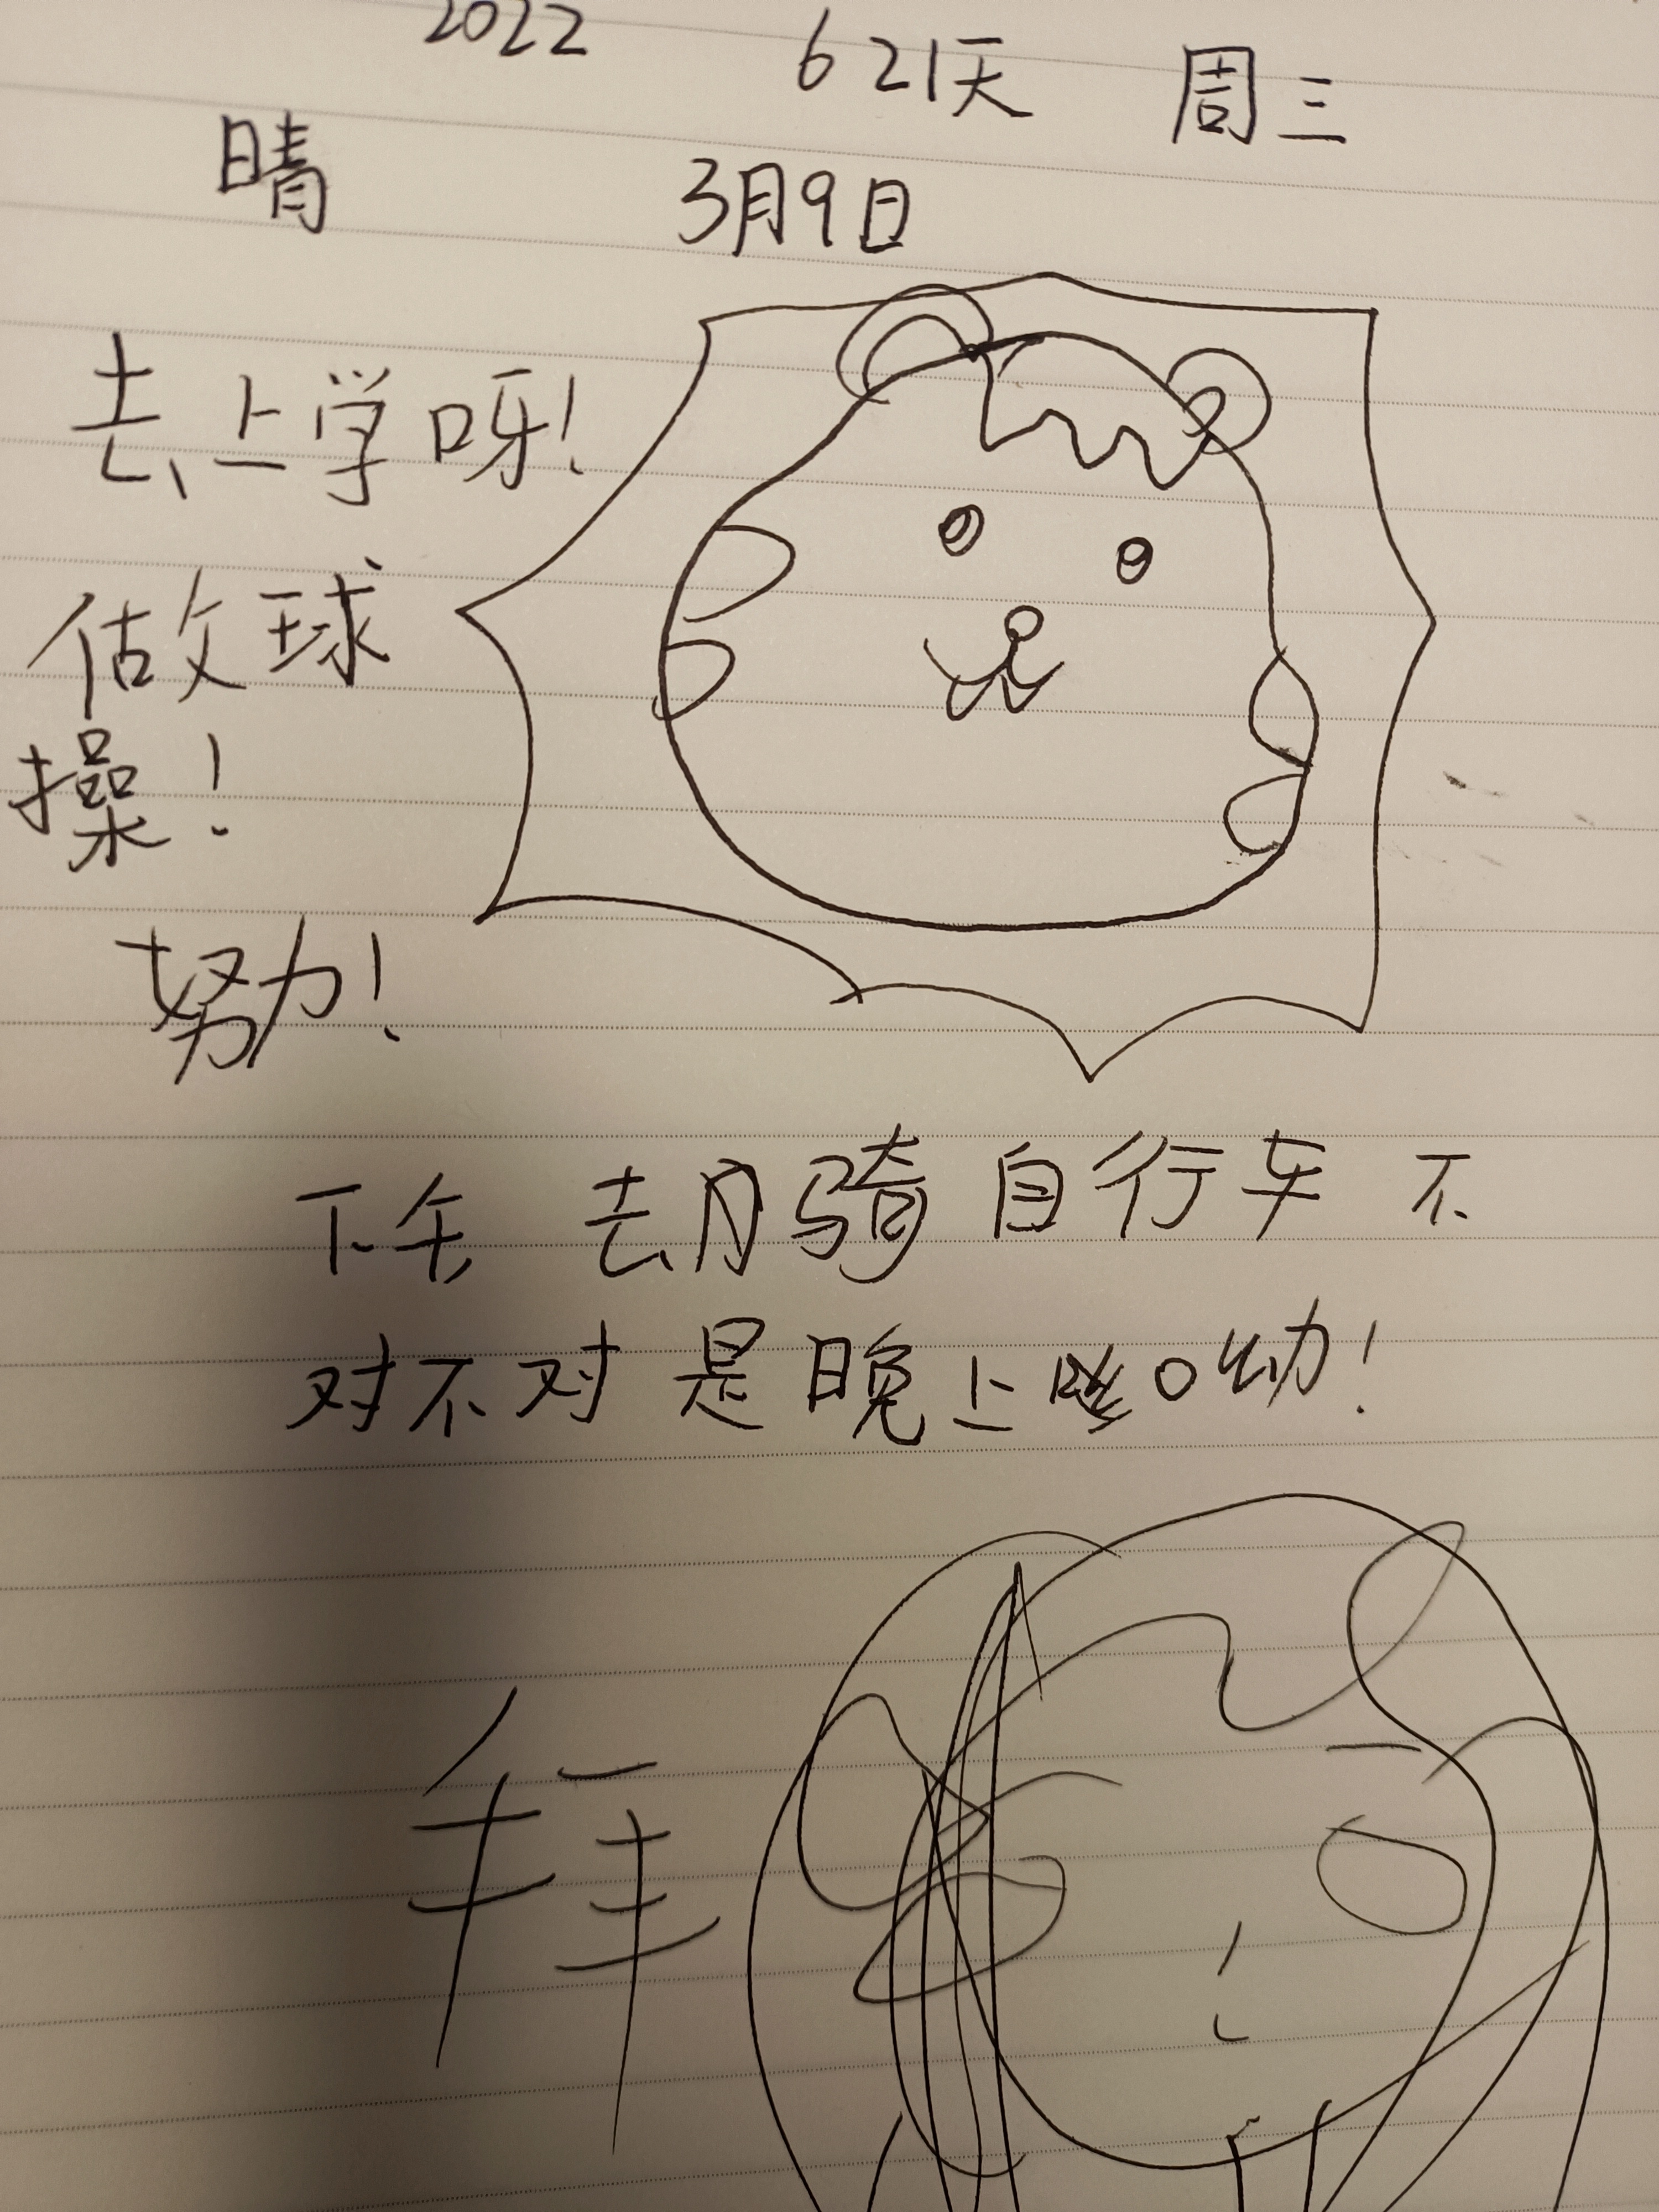 2022 621天 周三
晴 3月9日
去上学呀!
做球
操!
努力!
下午 去 骑自行车 不
对不对是晚上 呦!